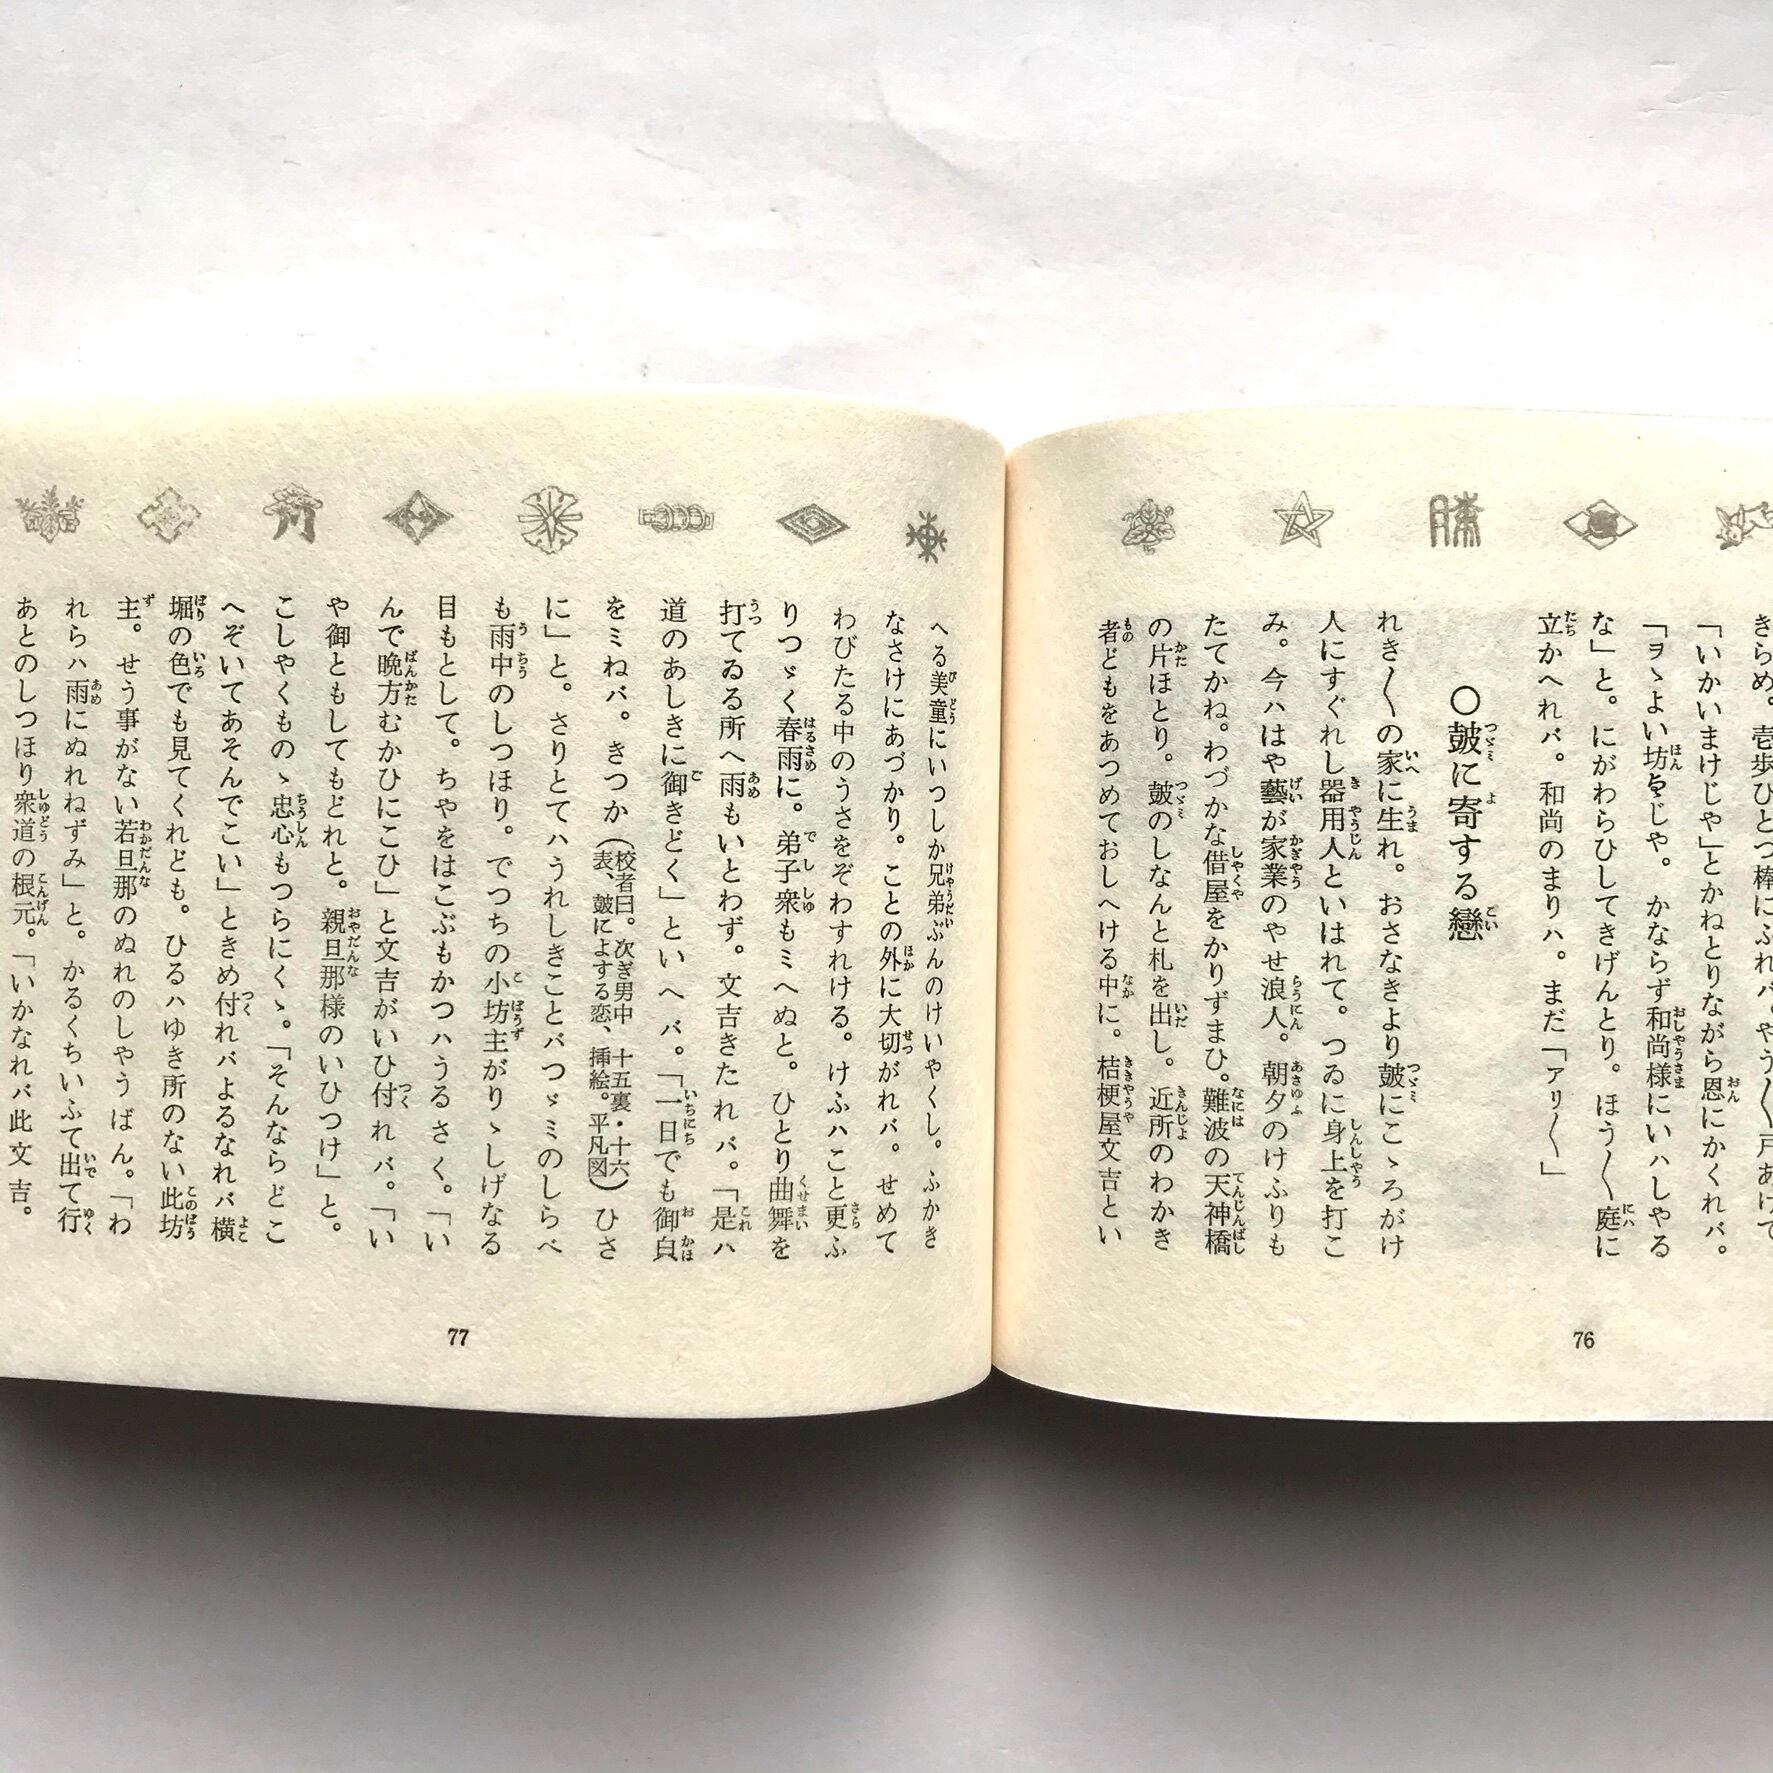 きらめ。壱歩ひとつ棒にふれバ。やう〱戸あけて
「いかいまけじや」とかねとりながら恩にかくれバ。
「ヲヽよい坊をじや。かならず和尚様にいハしやる
な」と。にがわらひしてきげんとり。ほう〱庭に
立かへれバ。和尚のまりハ。まだ「アリ〱」
○皷に寄する戀
れき〱の家に生れ。おさなきより皷にこゝろがけ
人にすぐれし器用人といはれて。つゐに身上を打こ
み。今ハはや藝が家業のやせ浪人。朝夕のけふりも
たてかね。わづかな借屋をかりずまひ。難波の天神橋
の片ほとり。皷のしなんと札を出し。近所のわかき
者どもをあつめておしへける中に。桔梗屋文吉とい
76
へる美童にいつしか兄弟ぶんのけいやくし。ふかき
なさけにあづかり。ことの外に大切がれバ。せめて
わびたる中のうさをぞわすれける。けふハこと更ふ
りつゞく春雨に。弟子衆もミへぬと。ひとり曲舞を
打てゐる所へ雨もいとわず。文吉きたれバ。「是ハ
道のあしきに御きどく」といへバ。「一日でも御皃
をミねバ。きつか(校者曰。次ぎ男中 十五裏・十六表、皷によする恋、挿絵。平凡図)ひさ
に」と。さりとてハうれしきことバつゞミのしらべ
も雨中のしつほり。でつちの小坊主がりゝしげなる
目もとして。ちやをはこぶもかつハうるさく。「い
んで晩方むかひにこひ」と文吉がいひ付れバ。「い
や御ともしてもどれと。親旦那様のいひつけ」と。
こしやくものゝ忠心もつらにくゝ。「そんならどこ
へぞいてあそんでこい」ときめ付れバよるなれバ横
堀の色でも見てくれども。ひるハゆき所のない此坊
主。せう事がない若旦那のぬれのしやうばん。「わ
れらハ雨にぬれねずみ」と。かるくちいふて出て行
あとのしつほり衆道の根元。「いかなれバ此文吉。
77